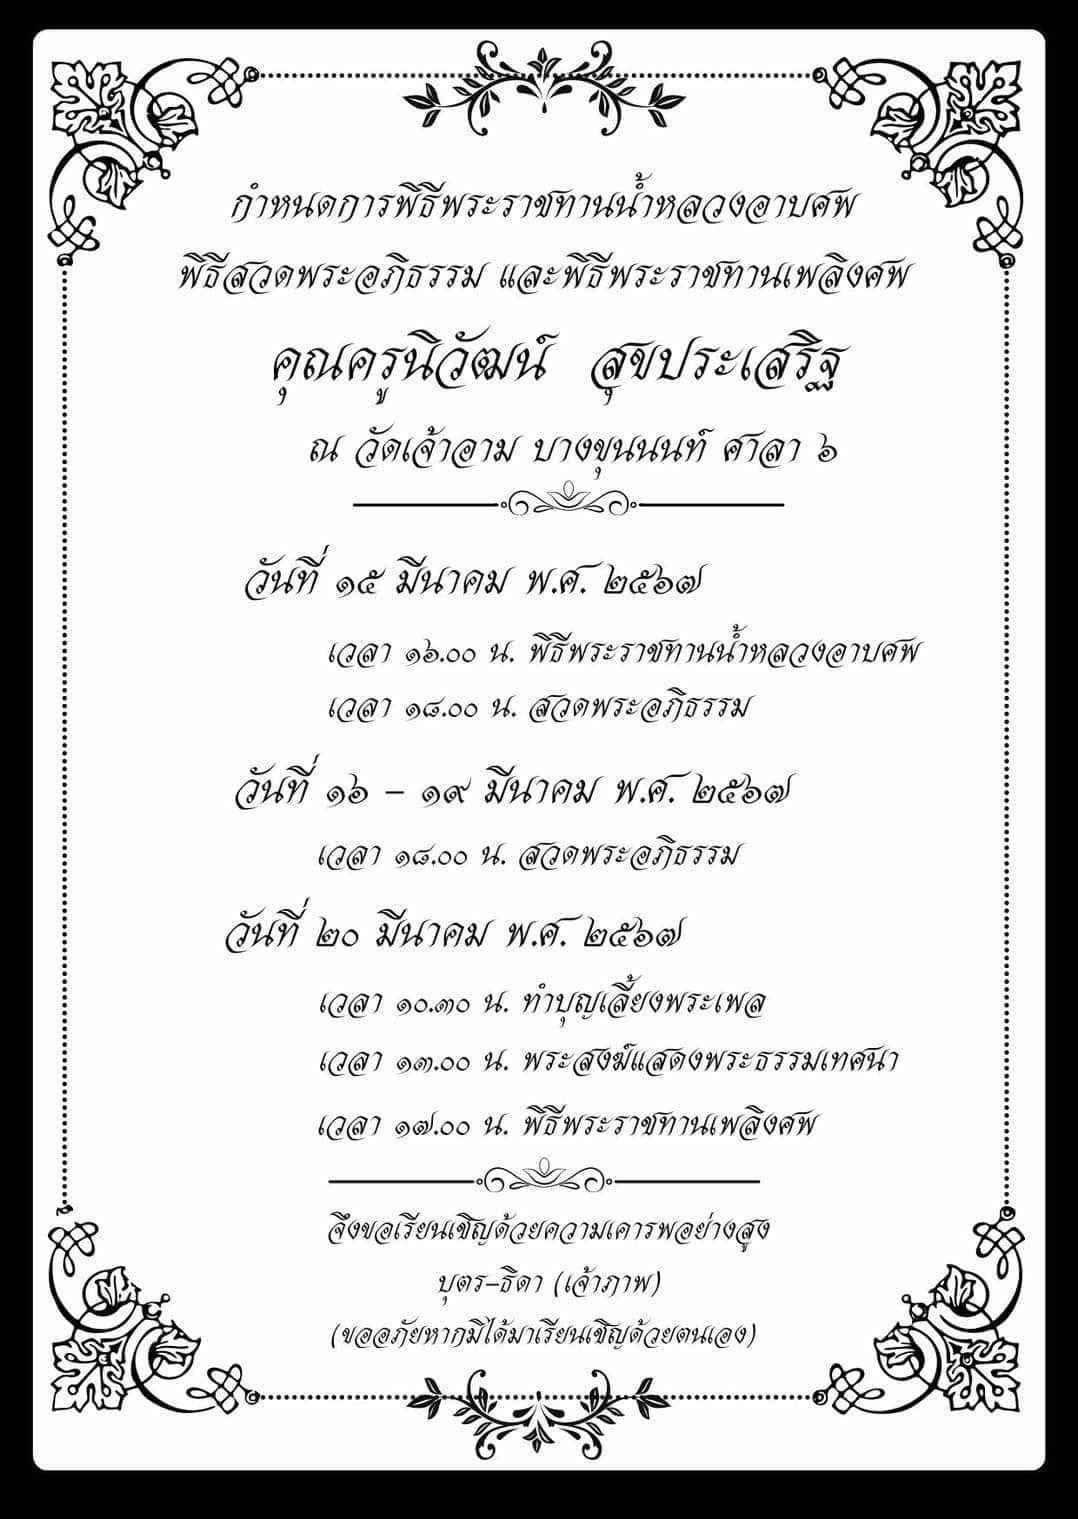 กำหนดการพิธีพระราชทานน้ำหลวงอาบศพ
พิธีสวดพระอภิธรรม และพิธีพระราชทานเพลิงศพ
คุณครูนิวัฒน์ สุขประเสริฐ
ณ วัดเจ้าอาม บางขุนนนท์ ศาลา ๖
วันที่ ๑๕ มีนาคม พ.ศ. ๒๕๖๗
เวลา ๑๖.๐๐ น. พิธีพระราชทานน้ำหลวงอาบศพ
เวลา ๑๘.๐๐ น. สวดพระอภิธรรม
วันที่ ๑๖ - ๑๙ มีนาคม พ.ศ. ๒๕๖๗
เวลา ๑๘.๐๐ น. สวดพระอภิธรรม
วันที่ ๒๐ มีนาคม พ.ศ. ๒๕๖๗
เวลา ๑๐.๓๐ น. ทำบุญเลี้ยงพระเพล
เวลา ๑๓.๐๐ น. พระสงฆ์แสดงพระธรรมเทศนา
เวลา ๑๗.๐๐ น. พิธีพระราชทานเพลิงศพ
จึงขอเรียนเชิญด้วยความเคารพอย่างสูง
บุตร-ธิดา (เจ้าภาพ)
(ขออภัยหากมิได้มาเรียนเชิญด้วยตนเอง)